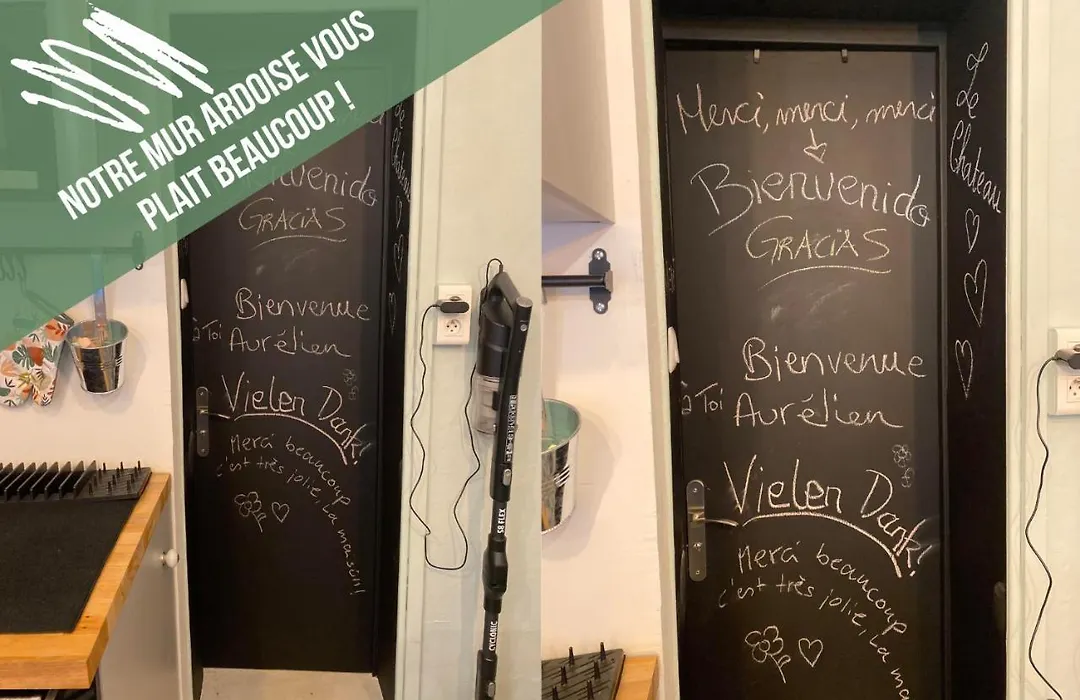 NOTRE MUR ARDOISE VOUS
PLAIT BEAUCOUP !
Bienvenido
GRACIAS
Bienvenue
à Toi
Aurélien
Vielen Dank!
Merci beaucoup
c'est très jolie, La maison!
Le Chateau
S8 FLEX
CYCLONIC
Merci, merci, merci
Bienvenido
GRACIAS
Bienvenue
à Toi
Aurélien
Vielen Dank!
Merci beaucoup
c'est très jolie, La ma
Le Chateau